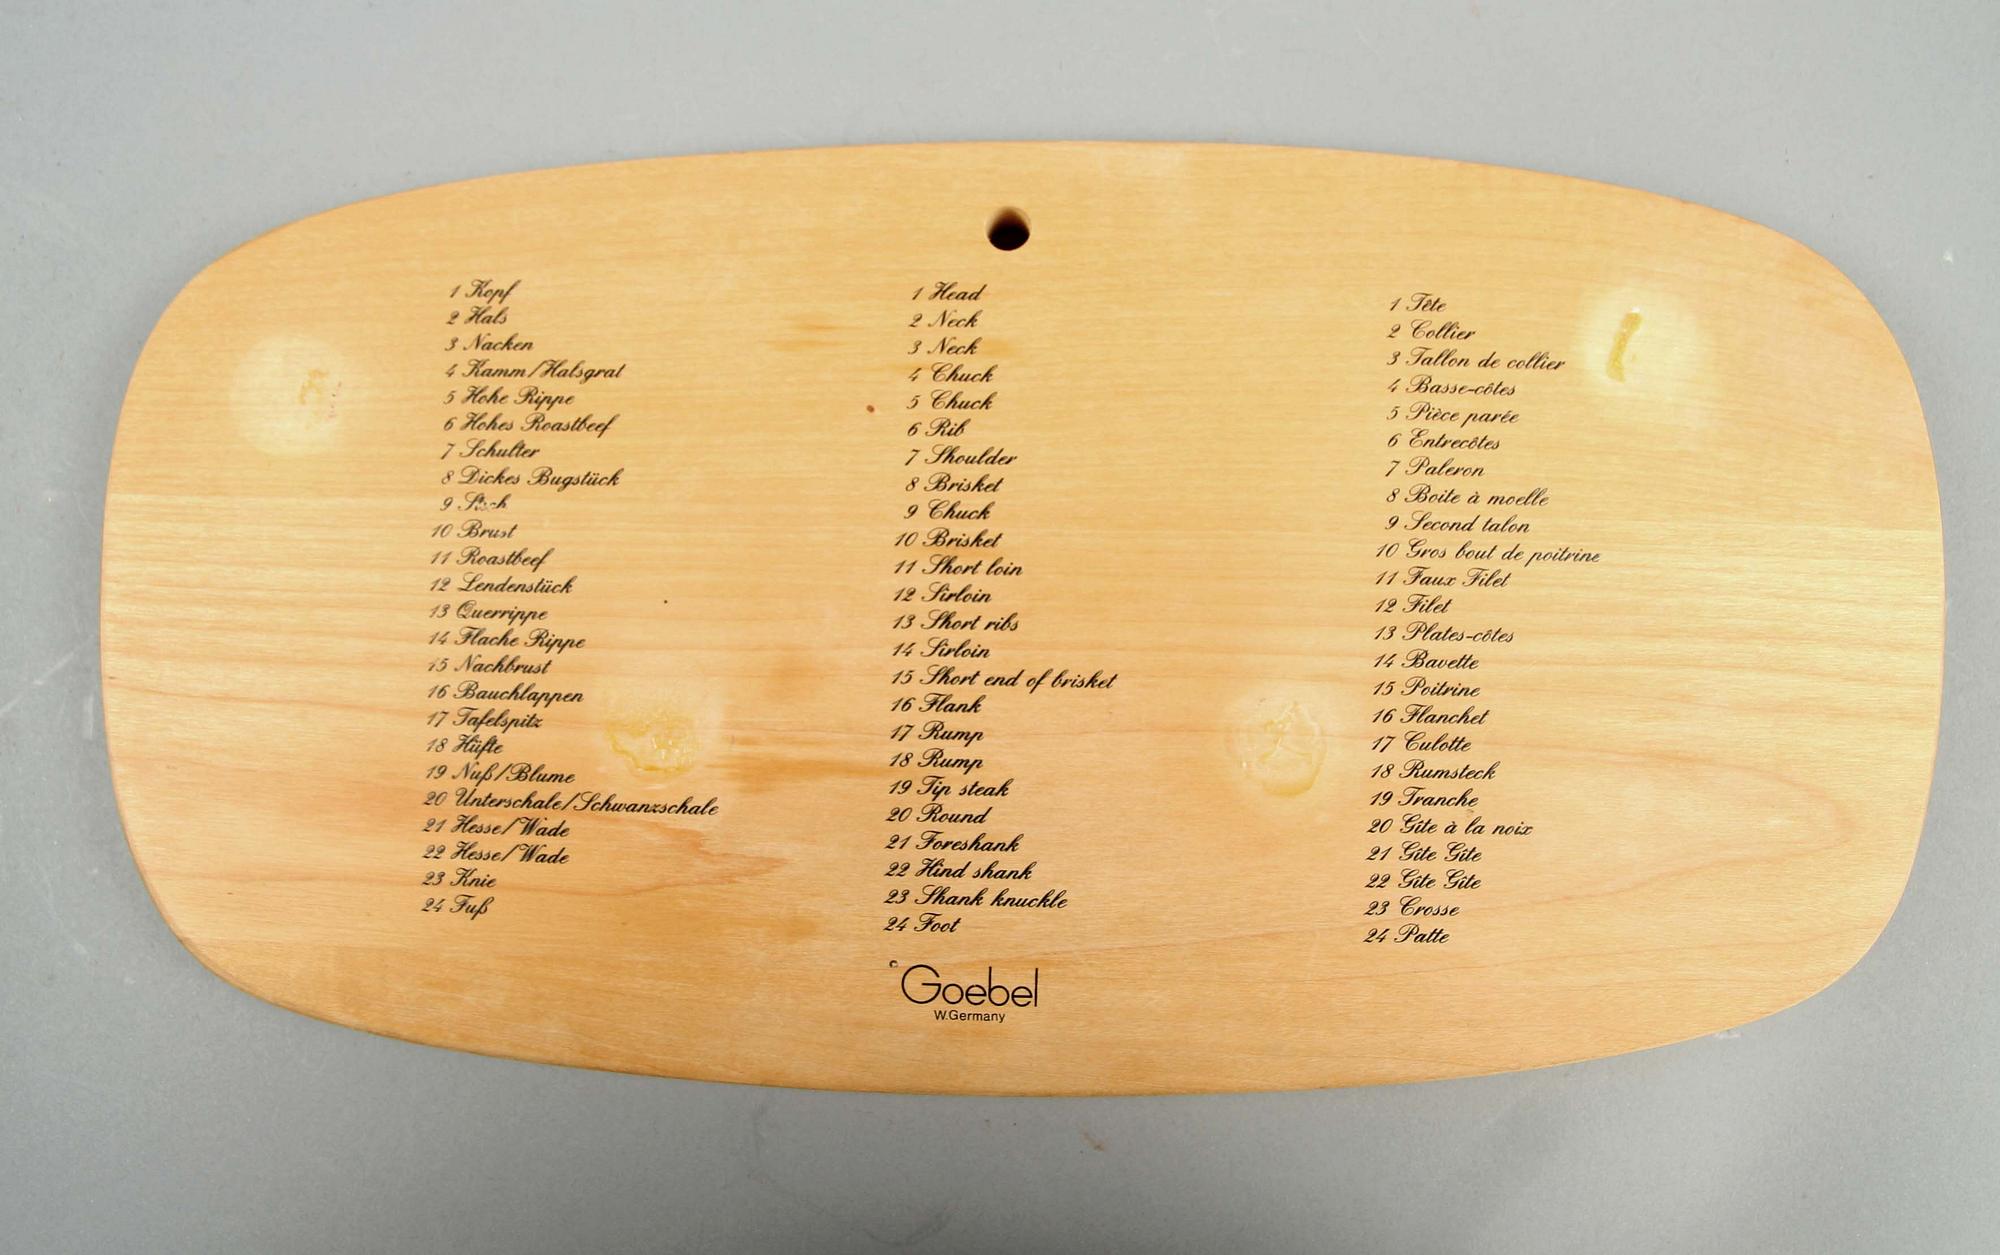 1 Kopf
2 Hals
3 Nacken
4 Kamm/Halsgrat
5 Hohe Rippe
6 Hohes Roastbeef
7 Schulter
8 Dickes Bugstück
9 Stich
10 Brust
11 Roastbeef
12 Lendenstück
13 Querrippe
14 Flache Rippe
15 Nachbrust
16 Bauchlappen
17 Tafelspitz
18 Hüfte
19 Nuß/Blume
20 Unterschale/Schwanzschale
21 Hesse/Wade
22 Hesse/Wade
23 Knie
24 Fuß
1 Head
2 Neck
3 Neck
4 Chuck
5 Chuck
6 Rib
7 Shoulder
8 Brisket
9 Chuck
10 Brisket
11 Short loin
12 Sirloin
13 Short ribs
14 Sirloin
15 Short end of brisket
16 Flank
17 Rump
18 Rump
19 Tip steak
20 Round
21 Foreshank
22 Hind shank
23 Shank knuckle
24 Foot
1 Tête
2 Collier
3 Tallon de collier
4 Basse-côtes
5 Pièce parée
6 Entrecôtes
7 Paleron
8 Boite à moelle
9 Second talon
10 Gros bout de poitrine
11 Faux Filet
12 Filet
13 Plates-côtes
14 Bavette
15 Poitrine
16 Flanchet
17 Culotte
18 Rumsteck
19 Tranche
20 Gîte à la noix
21 Gîte Gîte
22 Gîte Gîte
23 Crosse
24 Patte
© Goebel
W.Germany